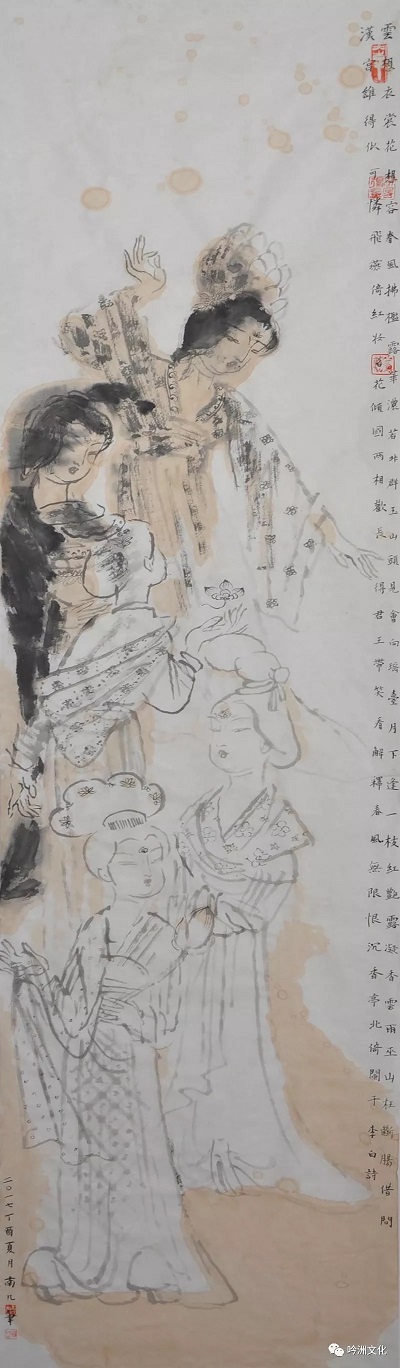 雲想衣裳花想容春風拂檻露華濃若非群玉山頭見會向瑶臺月下逢一枝紅艷露凝香雲雨巫山枉斷腸借問
漢宮誰得似可憐飛燕倚紅妝名花傾國兩相歡長得君王帶笑看解釋春風無限恨沉香亭北倚闌干 李白詩
二〇一七丁酉夏月南凡筆
吟洲文化